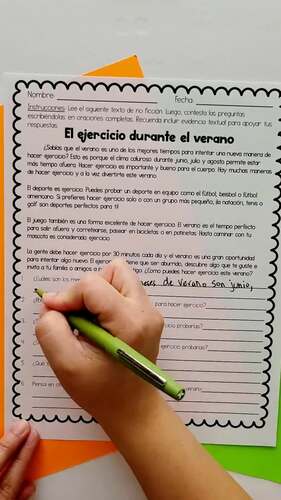 Nombre: Fecha:
Instrucciones: Lee el siguiente texto de no ficción. Luego, contesta las preguntas
escribiéndolas en oraciones completas. Recuerda incluir evidencia textual para apoyar tus
respuestas.
El ejercicio durante el verano
¿Sabías que el verano es uno de los mejores tiempos para intentar una nueva manera de
hacer ejercicio? Esto es porque el clima caluroso durante junio, julio y agosto permite estar
más tiempo afuera. Hacer ejercicio es importante y bueno para el cuerpo. Hay muchas maneras
de hacer ejercicio y a la vez divertirte este verano.
El deporte es ejercicio. Puedes probar un deporte en equipo como el fútbol, beisbol o fútbol
americano. Si prefieres hacer ejercicio solo o con un grupo más pequeño, ¡la natación, tenis o
golf son deportes perfectos para ti!
El juego también es una forma excelente de hacer ejercicio. El verano es el tiempo perfecto
para salir afuera y corretearse, pasear en bicicletas o en patinetas. Hasta caminar con tu
mascota es considerado ejercicio.
La gente debe hacer ejercicio por 30 minutos cada día y el verano es una gran oportunidad
para intentar algo nuevo. El ejercicio tiene que ser aburrido, descubre algo que te guste e
invita a tu familia o amigos a ¿Cómo puedes hacer ejercicio este verano?
¿Cuáles son los meses de verano son junio,
para hacer ejercicio?
probarías?
ejercicio probarías?
¿Qué
Piensa en verano?